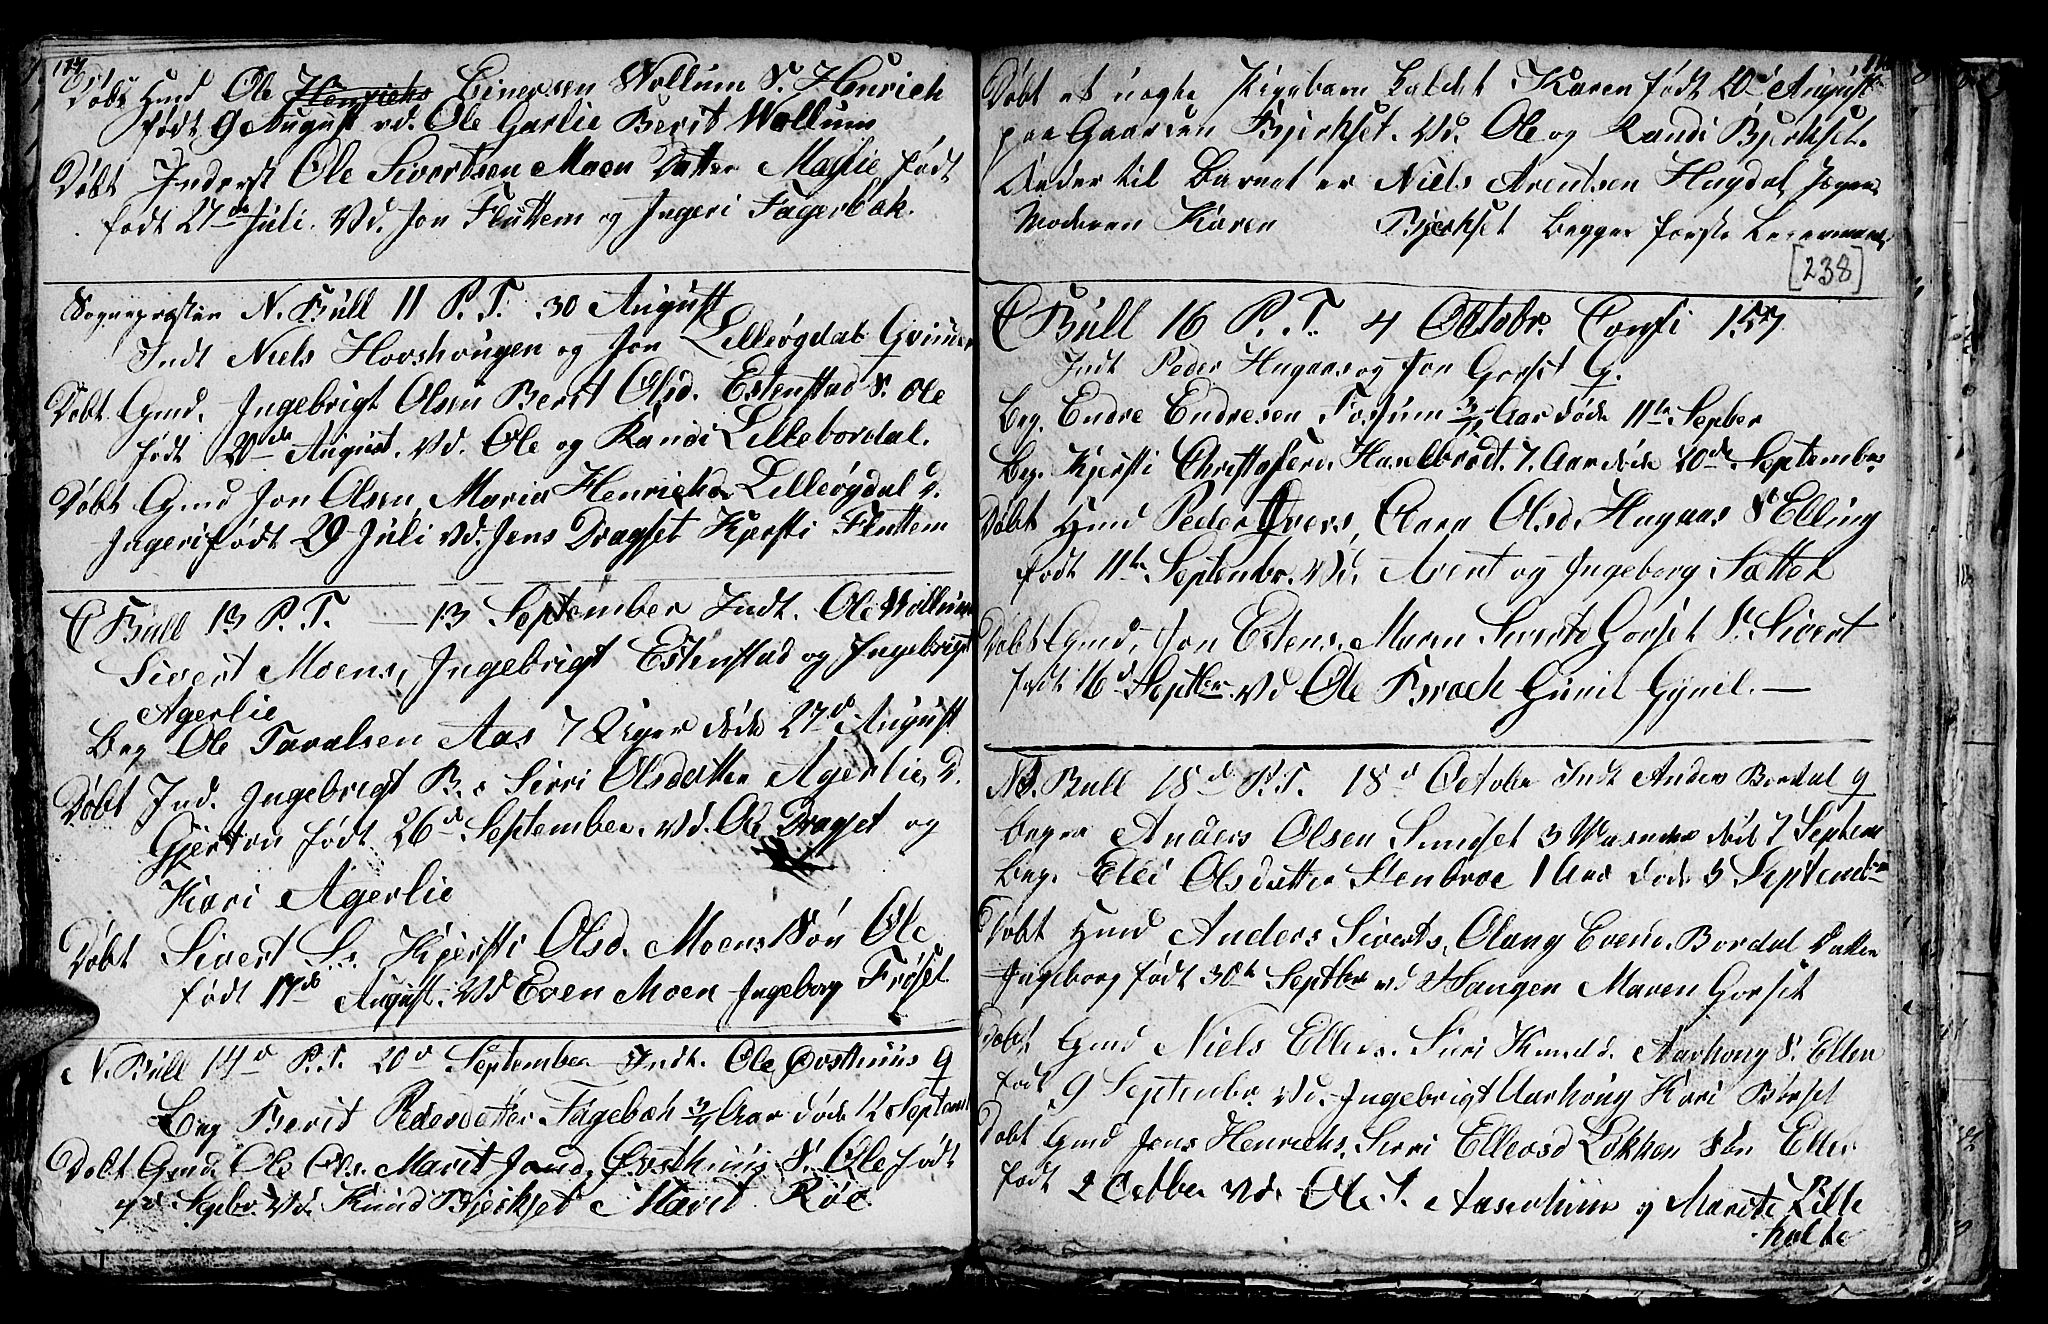 117
Døbt Hmd Ole Henrichs Einersen Wollum S. Henrich
født 9 August vd. Ole Garlie Berit Wollum
Døbt Inderst Ole Sivertsen Moen Datter Maslie født
født 27de Juli. Vd. Jon Fluttem og Ingeri Fagerbak.
Sognepræsten N. Bull 11 P. T. 30 August
Indt Niels Hovshougen og Jon Lilleøgdal Grinder
Døbt Gmd. Ingebrigt Olsen Berit Olsd. Estenstad S. Ole
født 20de August. Vd. Ole og Randi Lillebordal.
Døbt Gmd Jon Olsen Maria Henrichsd Lilleøgdal D.
Ingeri født 29 Juli vd. Jens Dragset Kjersti Fluttem
C Bull 13 P. T. — 13 September Indt. Ole Wollum
Sivert Moens, Ingebrigt Estenstad og Ingebrigt
Agerlie
Beg Ole Taralsen Aas 7 Uger døde 27d August
Døbt Ind. Ingebrigt B. Sirri Olsdatter Agerlie, D.
Gjertru født 26d September. vd. Ole Dragset og
Kari Agerlie
Døbt Sivert Ss Kjersti Olsd. Moens Søn Ole
født 17de August. Vd Even Moen Ingeborg Frøset
N. Bull 14d P. T. 20d September Indt. Ole Øosthuus g
Beg Berit Pedersdatter Fagebak 3/4 Aar døde 12 Septemb
Døbt Gmd. Ole Ols. Marit Jonsd. Øosthuus S. Ole født
7d Sepbr. Vd. Knud Bjerkset Marit Røe
Døbt et uægte Pigebarn kaldet Karen født 20d August
paa Gaarden Bjerkset. Vd. Ole og Randi Bjerkset.
til Barnet er Niels Arentsen Hugdal,
Moderen Karen Bjerkset begges første Leiermaal
[238]
C Bull 16 P. T. 4 Octobr. Consi 157
Indt Peder Hugaas og Jon Gorset G.
Beg. Endre Endresen Fossum 3/4 Aar døde 11te Sepber
Beg. Kjersti Christofers. Haselbrødt. 7. Aar døde 20de September
Døbt Hmd Peder Ivers, Anna Olsd. Hugaas S. Elling
født 11te Septembr. Vd. Arent og Ingeborg Sætter
Døbt Gmd, Jon Estens. Maren Sivertsd Gorset S. Sivert
født 16d Septber Vd Ole Broch Gunil Gynil. —
N. Bull 18de P. T. 18d October Indt Anders Bordal g
Begra Anders Olsen Sundset 3 Maaneder død 7 Septem
Beg. Eli Olsdatter Stenbroe 1 Aar døde 5 Septembr
Døbt Hmd Anders Siverts, Olaug Evens. Bordal Datter
Ingeborg født 30te Septbr vd Haugen Maren Gorset
Døbt Gmd Niels Ellevs. Siri Knudsd. Aarhoug S. Ellev
født 9 Septembr. Vd. Ingebrigt Aarhoug Kari Børset
Døbt Gmd Jons Henrichs, Sirri Ellevsd Løkken Søn Ellev
født 2 October Vd. Ole I. Aasenhuus og Marit Lille
holte